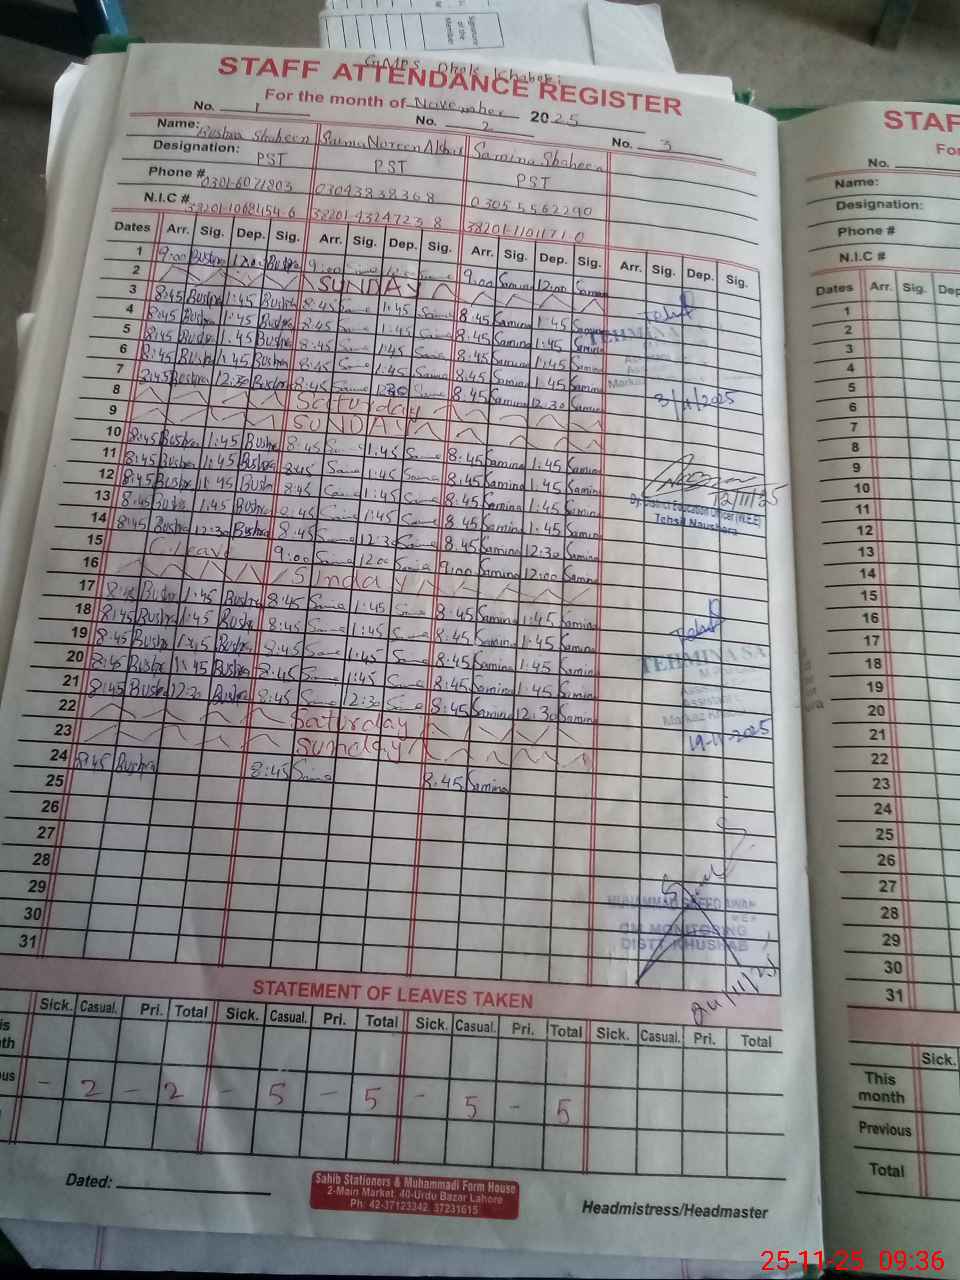 Signature of the Member
GMPS Dhok Khaboki
STAFF ATTENDANCE REGISTER
For the month of November 2025
No. 1 No. 2 No. 3
Name: Bushra Shaheen Saima Noreen Akhtar Samina Shaheen
Designation: PST PST PST
Phone # 0301-6071803 03043838368 0305 5562290
N.I.C #
Dates Arr. Sig. Dep. Sig. Arr. Sig. Dep. Sig. Arr. Sig. Dep. Sig. Arr. Sig. Dep. Sig.
1 9:00 Bushra 12:00 Bushra 9:00 Saima 12:00 Saima 9:00 Samina 12:00 Samina
2 SUNDAY
3 8:45 Bushra 1:45 Bushra 8:45 Saima 1:45 Saima 8:45 Samina 1:45 Samina
4 8:45 Bushra 1:45 Bushra 8:45 Saima 1:45 Saima 8:45 Samina 1:45 Samina
5 8:45 Bushra 1:45 Bushra 8:45 Saima 1:45 Saima 8:45 Samina 1:45 Samina
6 8:45 Bushra 1:45 Bushra 8:45 Saima 1:45 Saima 8:45 Samina 1:45 Samina
7 8:45 Bushra 12:30 Bushra 8:45 Saima 12:30 Saima 8:45 Samina 12:30 Samina
8 Saturday
9 SUNDAY
10 8:45 Bushra 1:45 Bushra 8:45 Saima 1:45 Saima 8:45 Samina 1:45 Samina
11 8:45 Bushra 1:45 Bushra 8:45 Saima 1:45 Saima 8:45 Samina 1:45 Samina
12 8:45 Bushra 1:45 Bushra 8:45 Saima 1:45 Saima 8:45 Samina 1:45 Samina
13 8:45 Bushra 1:45 Bushra 8:45 Saima 1:45 Saima 8:45 Samina 1:45 Samina
14 8:45 Bushra 12:30 Bushra 8:45 Saima 12:30 Saima 8:45 Samina 12:30 Samina
15 C.Leave 9:00 Saima 12:00 Saima 9:00 Samina 12:00 Samina
16 Sinday
17 8:45 Bushra 1:45 Bushra 8:45 Saima 1:45 Saima 8:45 Samina 1:45 Samina
18 8:45 Bushra 1:45 Bushra 8:45 Saima 1:45 Saima 8:45 Samina 1:45 Samina
19 8:45 Bushra 1:45 Bushra 8:45 Saima 1:45 Saima 8:45 Samina 1:45 Samina
20 8:45 Bushra 1:45 Bushra 8:45 Saima 1:45 Saima 8:45 Samina 1:45 Samina
21 8:45 Bushra 12:30 Bushra 8:45 Saima 12:30 Saima 8:45 Samina 12:30 Samina
22 Saturday
23 sunday
24 8:45 Bushra 8:45 Saima 8:45 Samina
25
26
27
28
29
30
31
TEHMINA SA
3/11/2025
12/11/25
Dy. District Education Officer (W.E.E)
Tehsil Naushera
TEHMINA SA
19-11-2025
MUHAMMAD SAEED AWAN
CM MONITORING
DISTT. KHUSHAB
24/11/25
STATEMENT OF LEAVES TAKEN
Sick. Casual. Pri. Total Sick. Casual. Pri. Total Sick. Casual. Pri. Total Sick. Casual. Pri. Total
- 2 - 2 - 5 - 5 - 5 - 5
Dated:
Sahib Stationers & Muhammadi Form House
2-Main Market, 40-Urdu Bazar Lahore
Ph: 42-37123342, 37231615
Headmistress/Headmaster
STAF
No.
Name:
Designation:
Phone #
N.I.C #
Dates Arr. Sig. Dep
1
2
3
4
5
6
7
8
9
10
11
12
13
14
15
16
17
18
19
20
21
22
23
24
25
26
27
28
29
30
31
Sick.
This month
Previous
Total
25-11-25 09:36